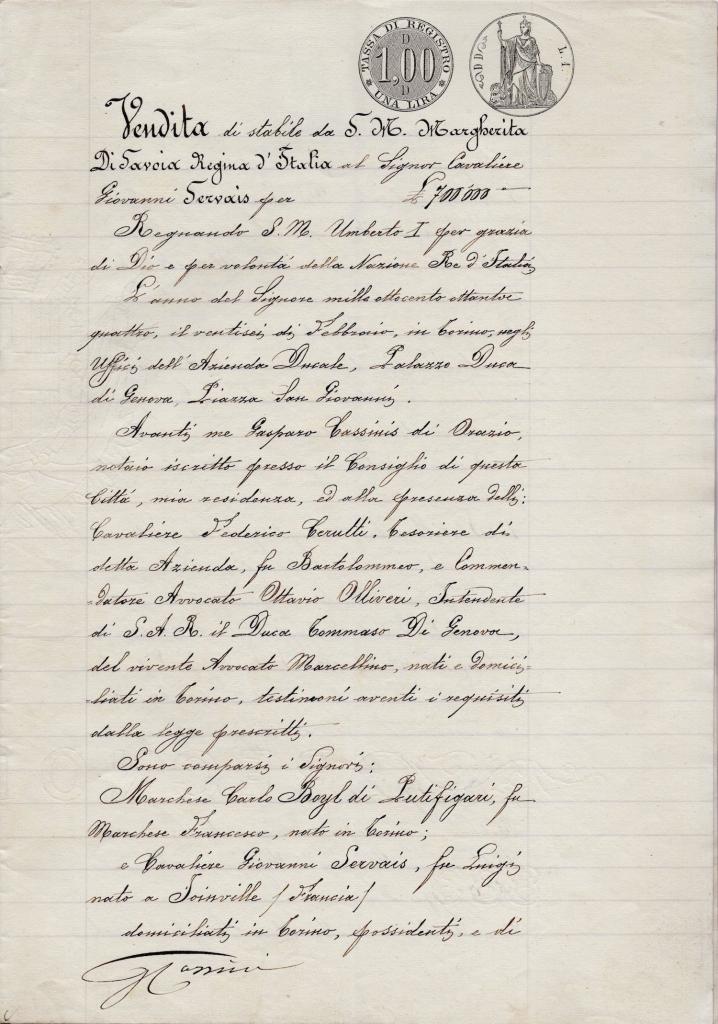 TASSA DI REGISTRO
D
1,00
D
UNA LIRA
L. 1.
Vendita di stabile da S. M. Margherita
Di Savoia Regina d'Italia al Signor Cavaliere
Giovanni Servais per £ 700'000 =
Regnando S. M. Umberto I per grazia
di Dio e per volontà della Nazione Re d'Italia,
L'anno del Signore mille ottocento ottanta
quattro, il ventisei di Febbraio, in Torino, negli
Uffici dell'Azienda Ducale, Palazzo Duca
di Genova, Piazza San Giovanni.
Avanti me Gasparo Cassinis di Orazio,
notaio iscritto presso il Consiglio di questa
Città, mia residenza, ed alla presenza delli:
Cavaliere Federico Cerutti, Tesoriere di
detta Azienda, fu Bartolommeo, e Commen-
-datore Avvocato Ottavio Olliveri, Intendente
di S. A. R. il Duca Tommaso Di Genova,
del vivente Avvocato Marcellino, nati e domici-
-liati in Torino, testimoni aventi i requisiti
dalla legge prescritti.
Sono comparsi i Signori:
Marchese Carlo Boyl di Putifigari, fu
Marchese Francesco, nato in Torino;
e Cavaliere Giovanni Servais, fu Luigi,
nato a Joinville / Francia /
domiciliati in Torino, possidenti, e di